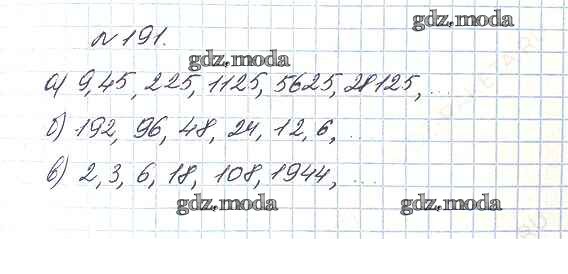 gdz.moda
№191.
gdz.moda
а) 9, 45, 225, 1125, 5625, 28125, ...
б) 192, 96, 48, 24, 12, 6, ...
в) 2, 3, 6, 18, 108, 1944, ...
gdz.moda gdz.moda